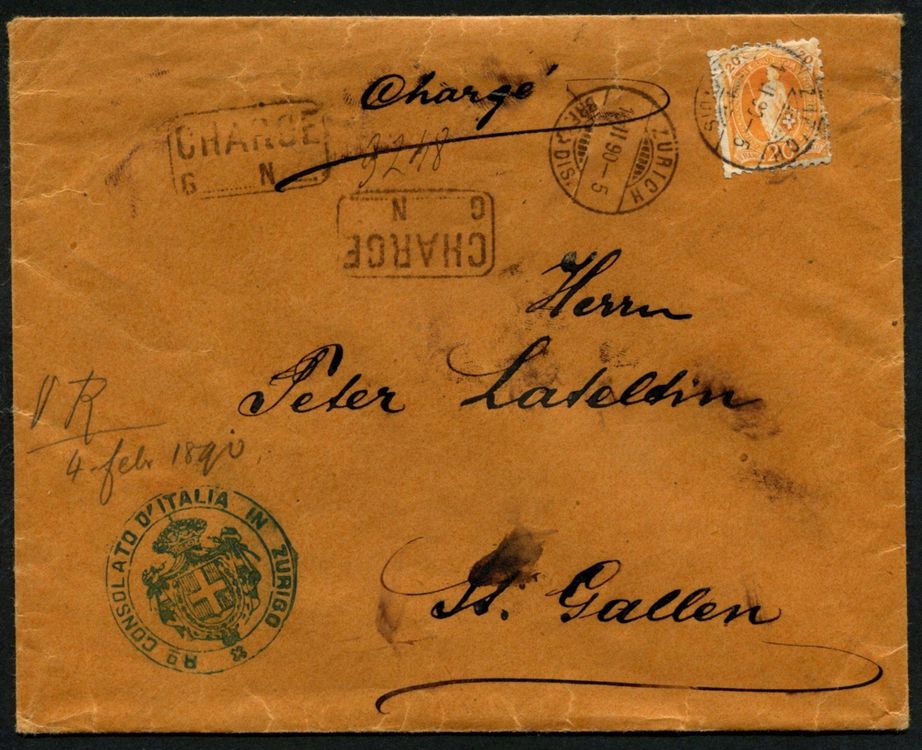 Chargé
CHARGE
G N
3248
CHARGE
G N
ZÜRICH
II 90 - 5
20
Herrn
Peter Lateltin
St. Gallen
R
4. febr 1890
Rº CONSOLATO D'ITALIA IN ZURIGO